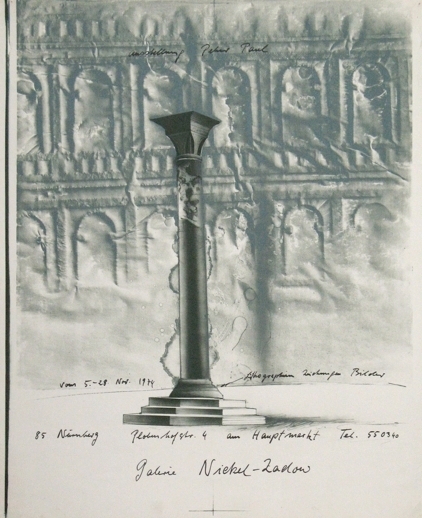 Ausstellung Peter Paul
vom 5.-28. Nov. 1974
Lithographien Zeichnungen Bilder
85 Nürnberg Plobenhofstr. 4 am Hauptmarkt Tel. 550340
Galerie Nickel-Zadow